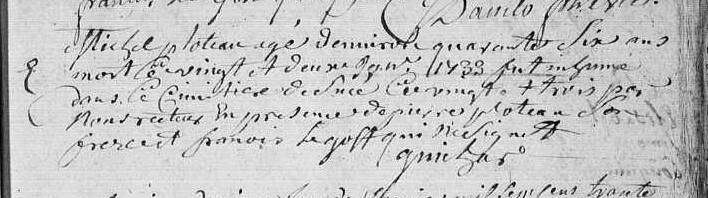 Danilo
Michel ploteau agé denviron quarante Six ans
mort Ce vingt et deuxe Janv. 1733 fut inhumé
dans Ce Cimistiere de Suce Ce vingt et trois par
Nous recteur En presence de pierre ploteau Son
frere et francois le goff qui ne Signe
guichar
mil Sept cens trante